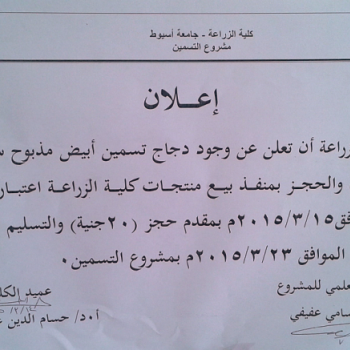 كلية الزراعة - جامعة أسيوط
مشروع التسمين
إعلان
زراعة أن تعلن عن وجود دجاج تسمين أبيض مذبوح
والحجز بمنفذ بيع منتجات كلية الزراعة اعتبار
فق ٢٠١٥/٣/١٥م بمقدم حجز (٢٠جنية) والتسليم
الموافق ٢٠١٥/٣/٢٣م بمشروع التسمين.
علمي للمشروع
عميد الكل
سامي عفيفي
أ.د/ حسام الدين